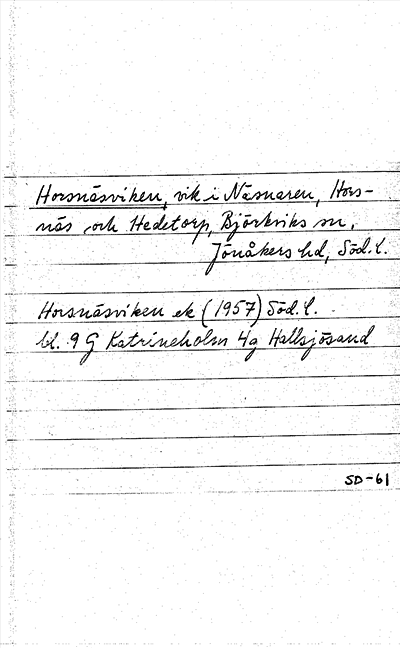 Horsnäsviken, vik i Näsnaren, Hors-
näs och Hedetorp, Björkviks sn,
Jönåkers hd, Söd. l.
Horsnäsviken ek (1957) Söd. l.
bl. 9 G Katrineholm 4g Hallsjösand
SD-61